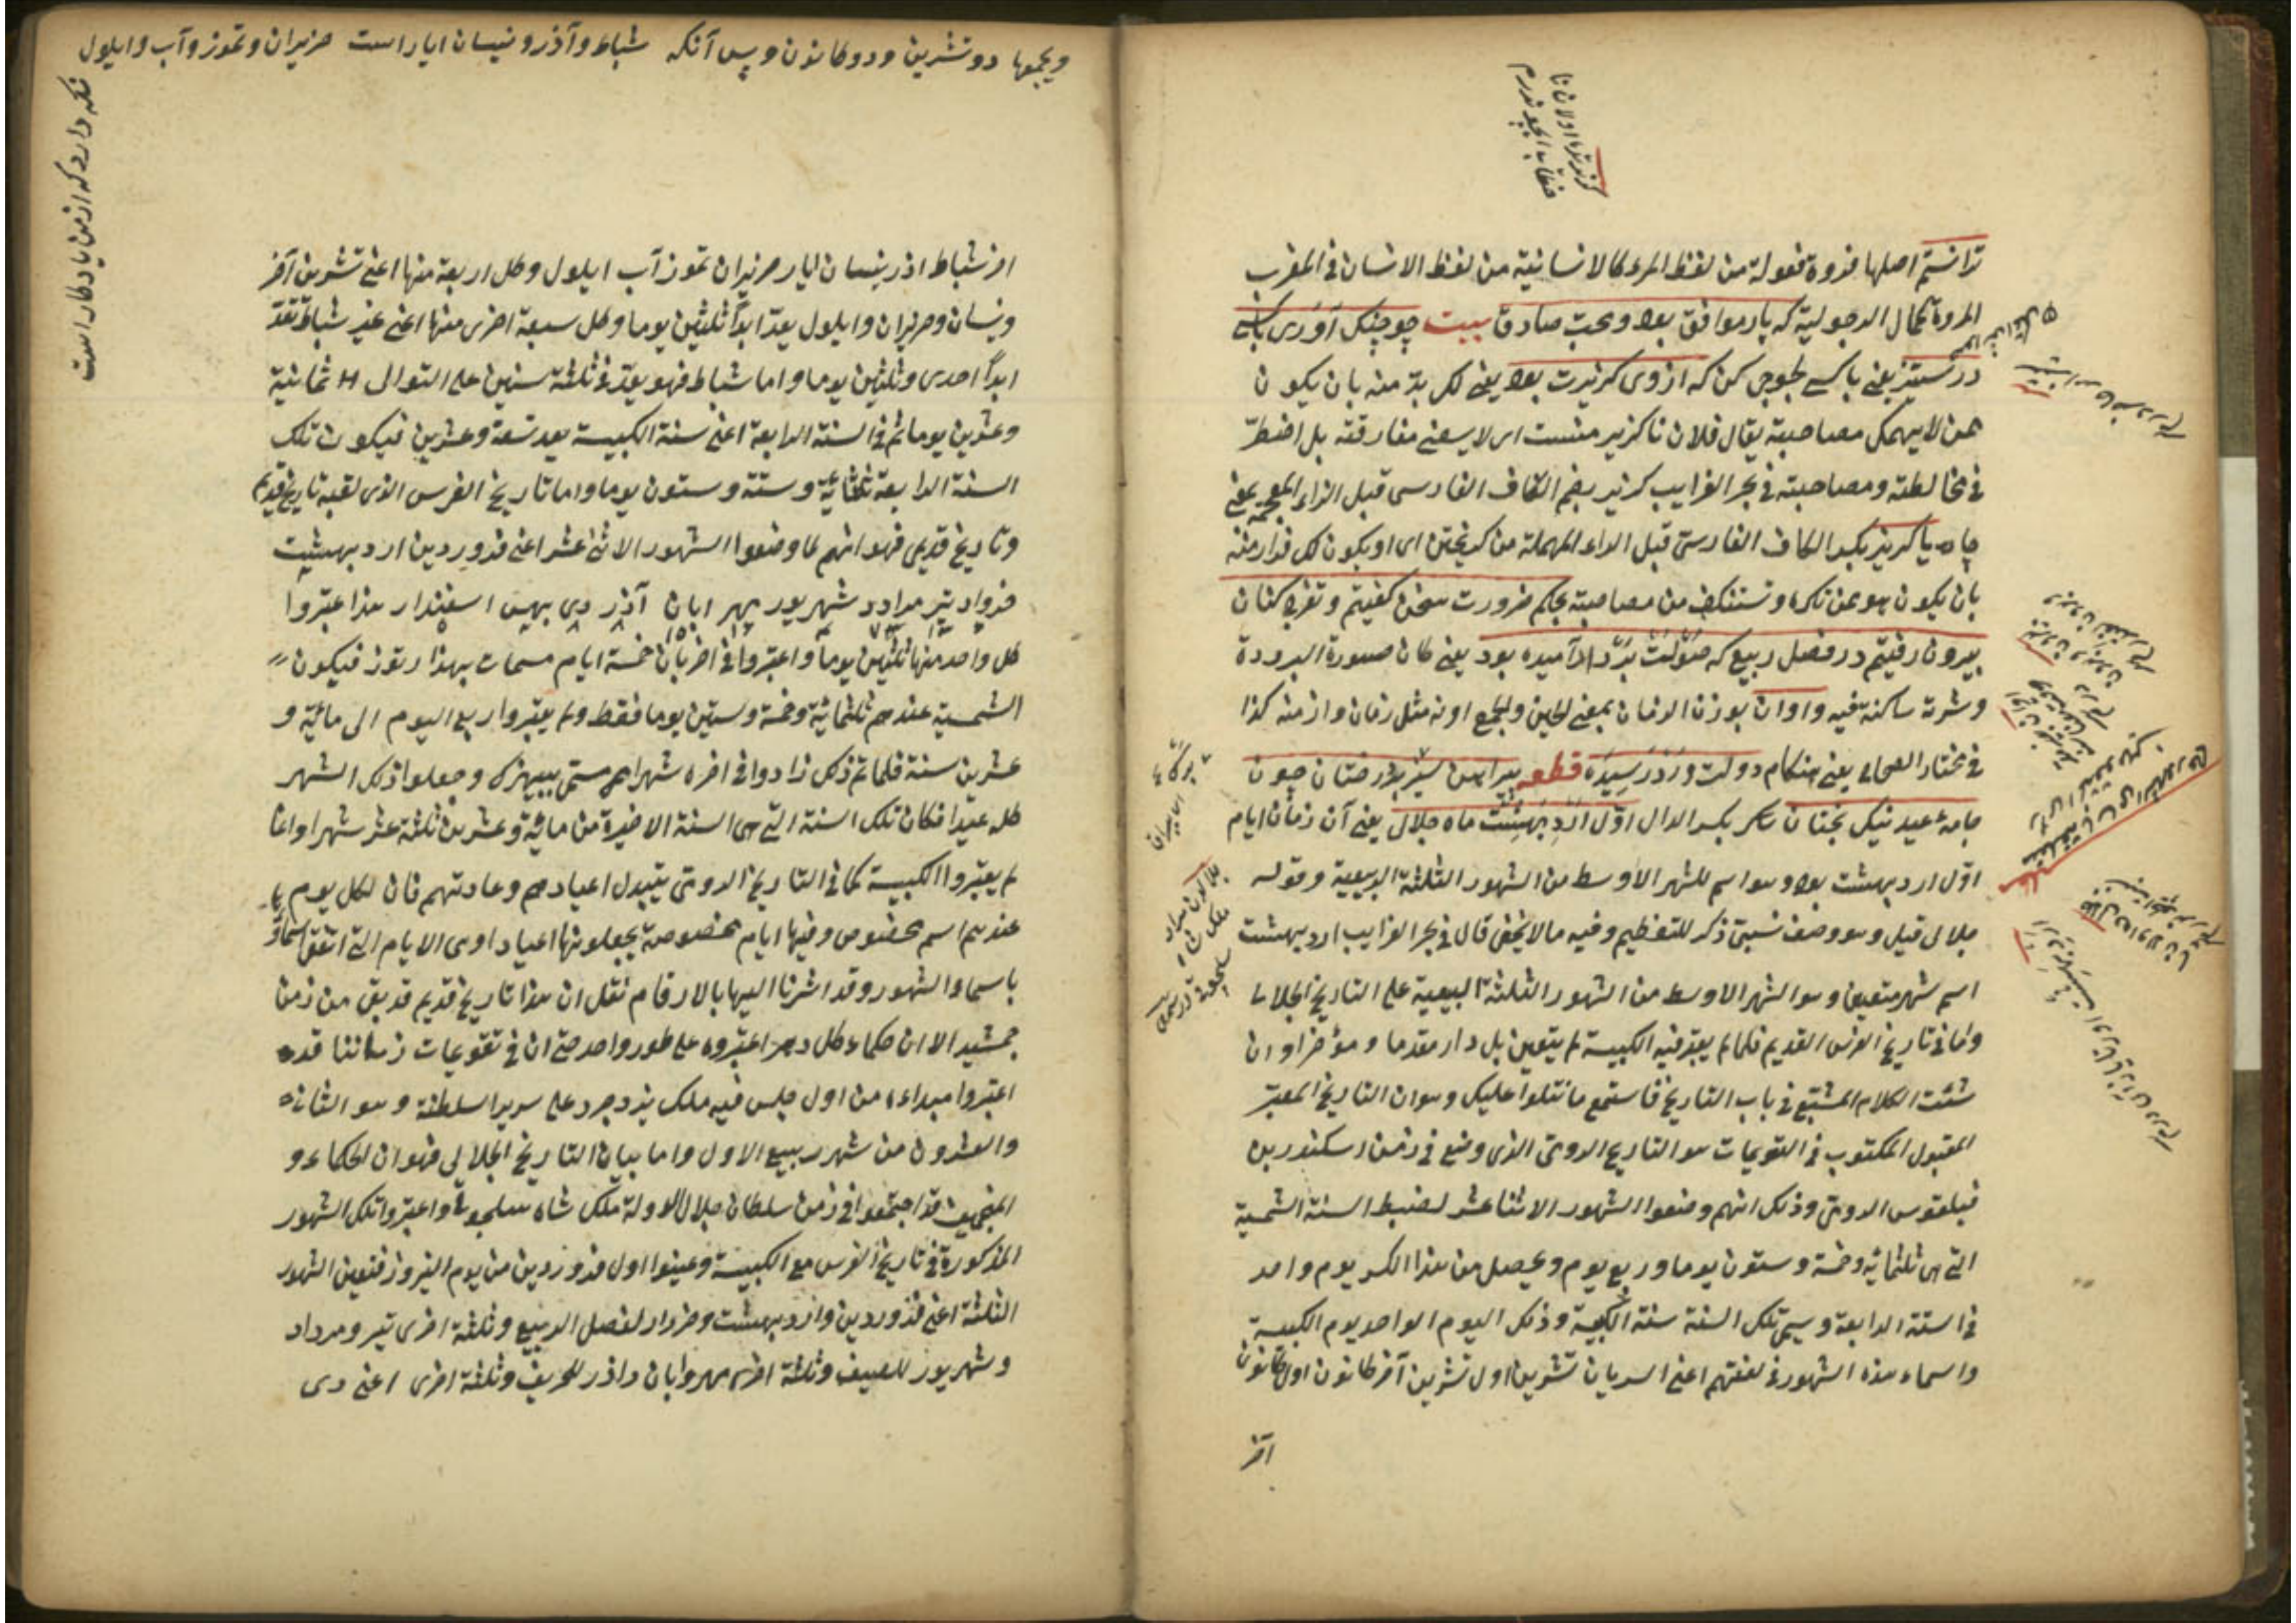 دانستم اصلها مروءة فعولة من لفظ المرء كالانسانية من لفظ الانسان فى المغرب
المروة كمال الرجولية كه يار موافق بود ومحب صادق بيت چو جنگ آورى با كسى
در ستيز يعنى با كسى لجوجى كن كه از وى گزيرت بود يعنى لك بد منه بان يكون
ممن لا يهمك مصاحبته يقال فلان ناگزير منست اى لا يسعنى مفارقته بل اضطر
فى مخالطته ومصاحبته فى بحر الغرايب گزير بضم الكاف الفارسى قبل الزاء المعجمة بمعنى
چاره يا گريز بكسر الكاف الفارسى قبل الراء المهملة من گريختن اى او يكون لك فرار منه
بان يكون هو ممن تكره وتستنكف من مصاحبته بحكم ضرورت سخن گفتيم وتفرج كنان
بيرون رفتيم در فصل ربيع كه صولت برد آرميده بود يعنى كان صورة البرودة
وشرته ساكنة فيه واوان بوزن الزمان بمعنى الحين والجمع اونه مثل زمان وازمنه كذا
فى مختار الصحاح يعنى هنگام دولت ورد رسيده قطعه پيراهن سبز بر درختان چون
جامهء عيد نيك بختان بكسر الدال اول ارديبهشت ماه جلالى يعنى آن زمان ايام
اول ارديبهشت بود وهو اسم للشهر الاوسط من الشهور الثلثة الربيعية وقوله
جلالى قيل وهو وصف نسبتى ذكر للتعظيم وفيه ما لا يخفى قال فى بحر الغرايب ارديبهشت
اسم شهر متعين وهو الشهر الاوسط من الشهور الثلثة الربيعية على التاريخ الجلالى
واما فى تاريخ الفرس القديم فلما لم يعتبر فيه الكبيسة لم يتعين بل دار مقدما ومؤخرا وان
شئت الكلام المشبع فى باب التاريخ فاستمع ما نتلوا عليك وهو ان التاريخ المعتبر
المقبول المكتوب فى التقويمات هو التاريخ الرومى الذى وضع فى زمن اسكندر بن
فيلقوس الرومى وذلك انهم وضعوا الشهور الاثنا عشر لضبط السنة الشمسية
التى هى ثلثمائة وخمسة وستون يوما وربع يوم ويحصل من هذا الكسر يوم واحد
فى السنة الرابعة ويسمى تلك السنة سنة الكبيسة وذلك اليوم الواحد يوم الكبيسة
واسماء هذه الشهور فى لغتهم اعنى السريان تشرين اول تشرين آخر كانون اول كانون
آخر
ويجمعها دو تشرين ودو كانون وپس آنكه شباط وآذر ونيسان ايار است حزيران وتموز وآب وايلول
نگه دارد كه از من يادگار است
اخر شباط اذر نيسان ايار حزيران تموز آب ايلول وكل اربعة منها اعنى تشرين آخر
ونيسان وحزيران وايلول يعد ابدا ثلثين يوما وكل سبعة اخرى منها اعنى غير شباط تعد
ابدا احدى وثلثين يوما واما شباط فهو يعد فى ثلثة سنين على التوالى ثمانية
وعشرين يوما ثم فى السنة الرابعة اعنى سنة الكبيسة يعد تسعة وعشرين فيكون تلك
السنة الرابعة ثلثمائة وستة وستون يوما واما تاريخ الفرس الذى لقبه تاريخ قديم
وتاريخ قديمى فهو انهم لما وضعوا الشهور الاثنى عشر اعنى فروردين ارديبهشت
خرداد تير مرداد شهريور مهر ابان آذر دى بهمن اسفندار مذ اعتبروا
كل واحد منها ثلثين يوما واعتبروا فى اخر ابان خمسة ايام مسمات بهذا رتوز فيكون
الشمسية عندهم ثلثمائة وخمسة وستين يوما فقط ولم يعتبروا ربع اليوم الى مائة و
عشرين سنة فلما تم ذلك زادوا فى اخره شهرا مستمى ببهيزك وجعلوا ذلك الشهر
كله عيدا فكان تلك السنة التى هى السنة الاخيرة من مائة وعشرين ثلثة عشر شهرا وانما
لم يعتبروا الكبيسة كما فى التاريخ الرومى يتبدل اعيادهم وعادتهم فان لكل يوم
عندهم اسم مخصوص وفيها ايام مخصوصة يجعلونها اعيادا وهى الايام التى اتفق اسماؤها
باسماء الشهور وقد اشرنا اليها بالارقام نقل ان هذا تاريخ قديم قد بقى من زمن
جمشيد الا ان حكماء كل دهر اعتبروه على طور واحد حتى ان فى تقويمات زماننا قد
اعتبروا مبداءه من اول جلس فيه ملك يزدجرد على سرير السلطنة وهو الثانى
والعشرون من شهر ربيع الاول واما بيان التاريخ الجلالى فهو ان الحكماء و
المنجمين قد اجتمعوا فى زمن سلطان جلال الدولة ملك شاه سلجوقى واعتبروا تلك الشهور
المذكورة فى تاريخ الفرس مع الكبيسة وعينوا اول فروردين من يوم النيروز فتعين الشهور
الثلثة اعنى فروردين وارديبهشت وخرداد لفصل الربيع وثلثة اخرى تير ومرداد
وشهريور للصيف وثلثة اخرى مهر وابان واذر للخريف وثلثة اخرى اعنى دى